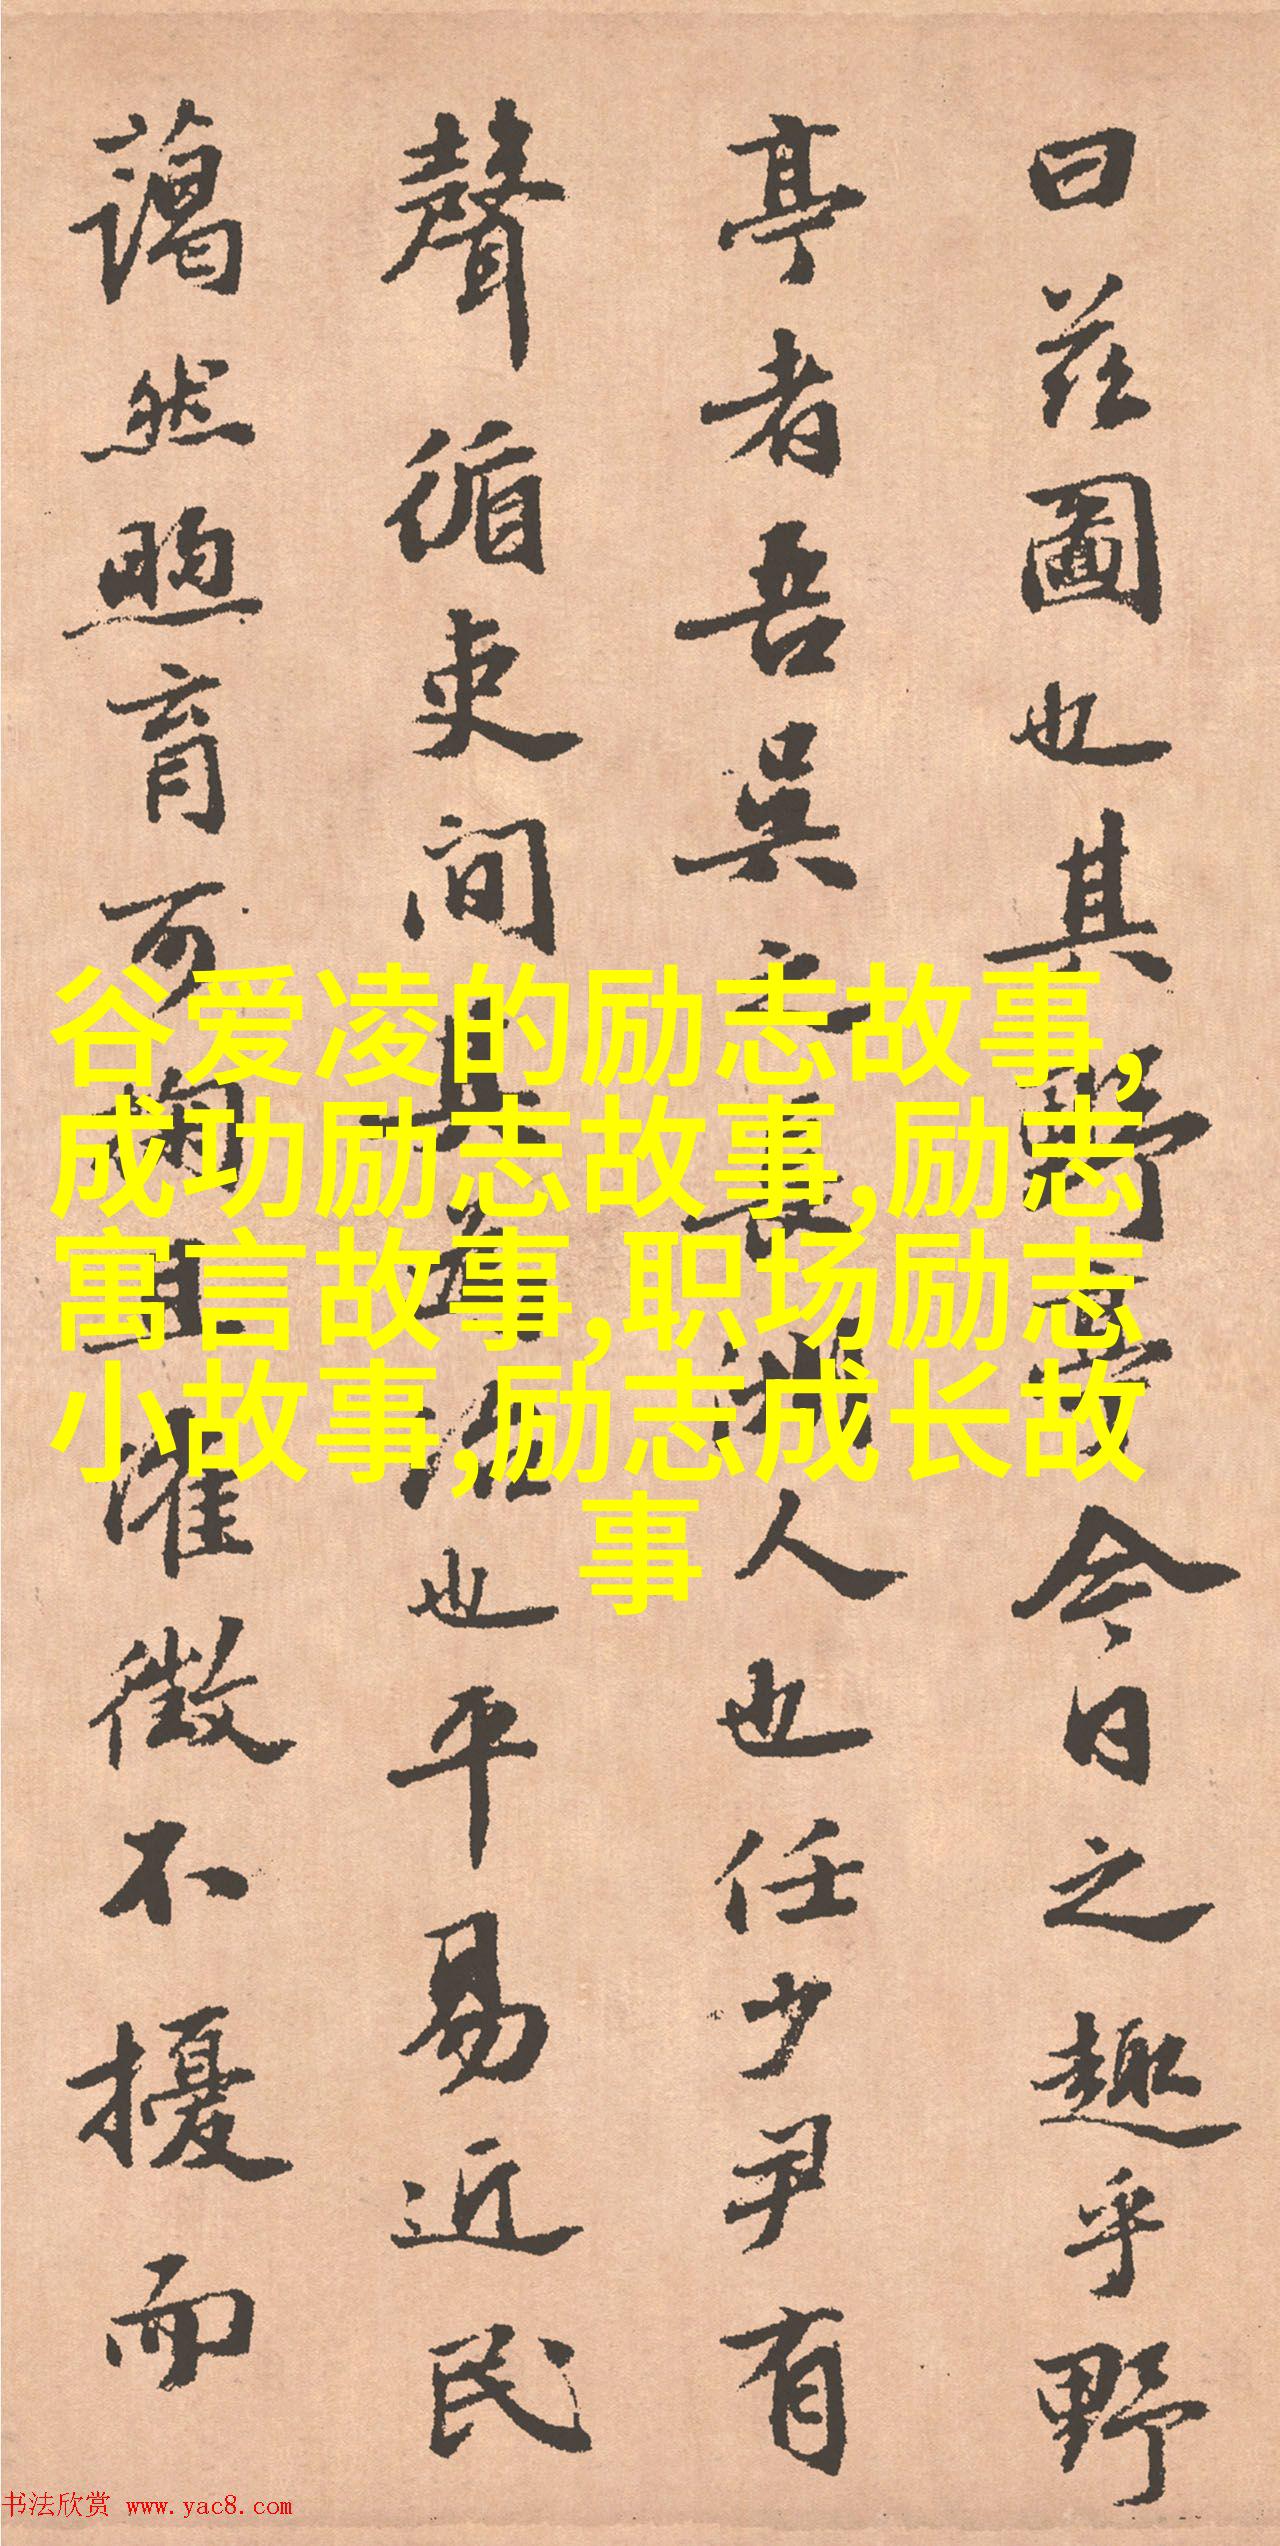 曰茲圖也其野亭今日之趣乎野
亭者吾吳之良牧人也任少尹有
聲循吏间其為治也平易近民
藹然煦育可掬且催徵不擾而
谷爱凌的励志故事,
成功励志故事,励志
寓言故事,职场励志
小故事,励志成长故
事
书法欣赏 www.yac8.com